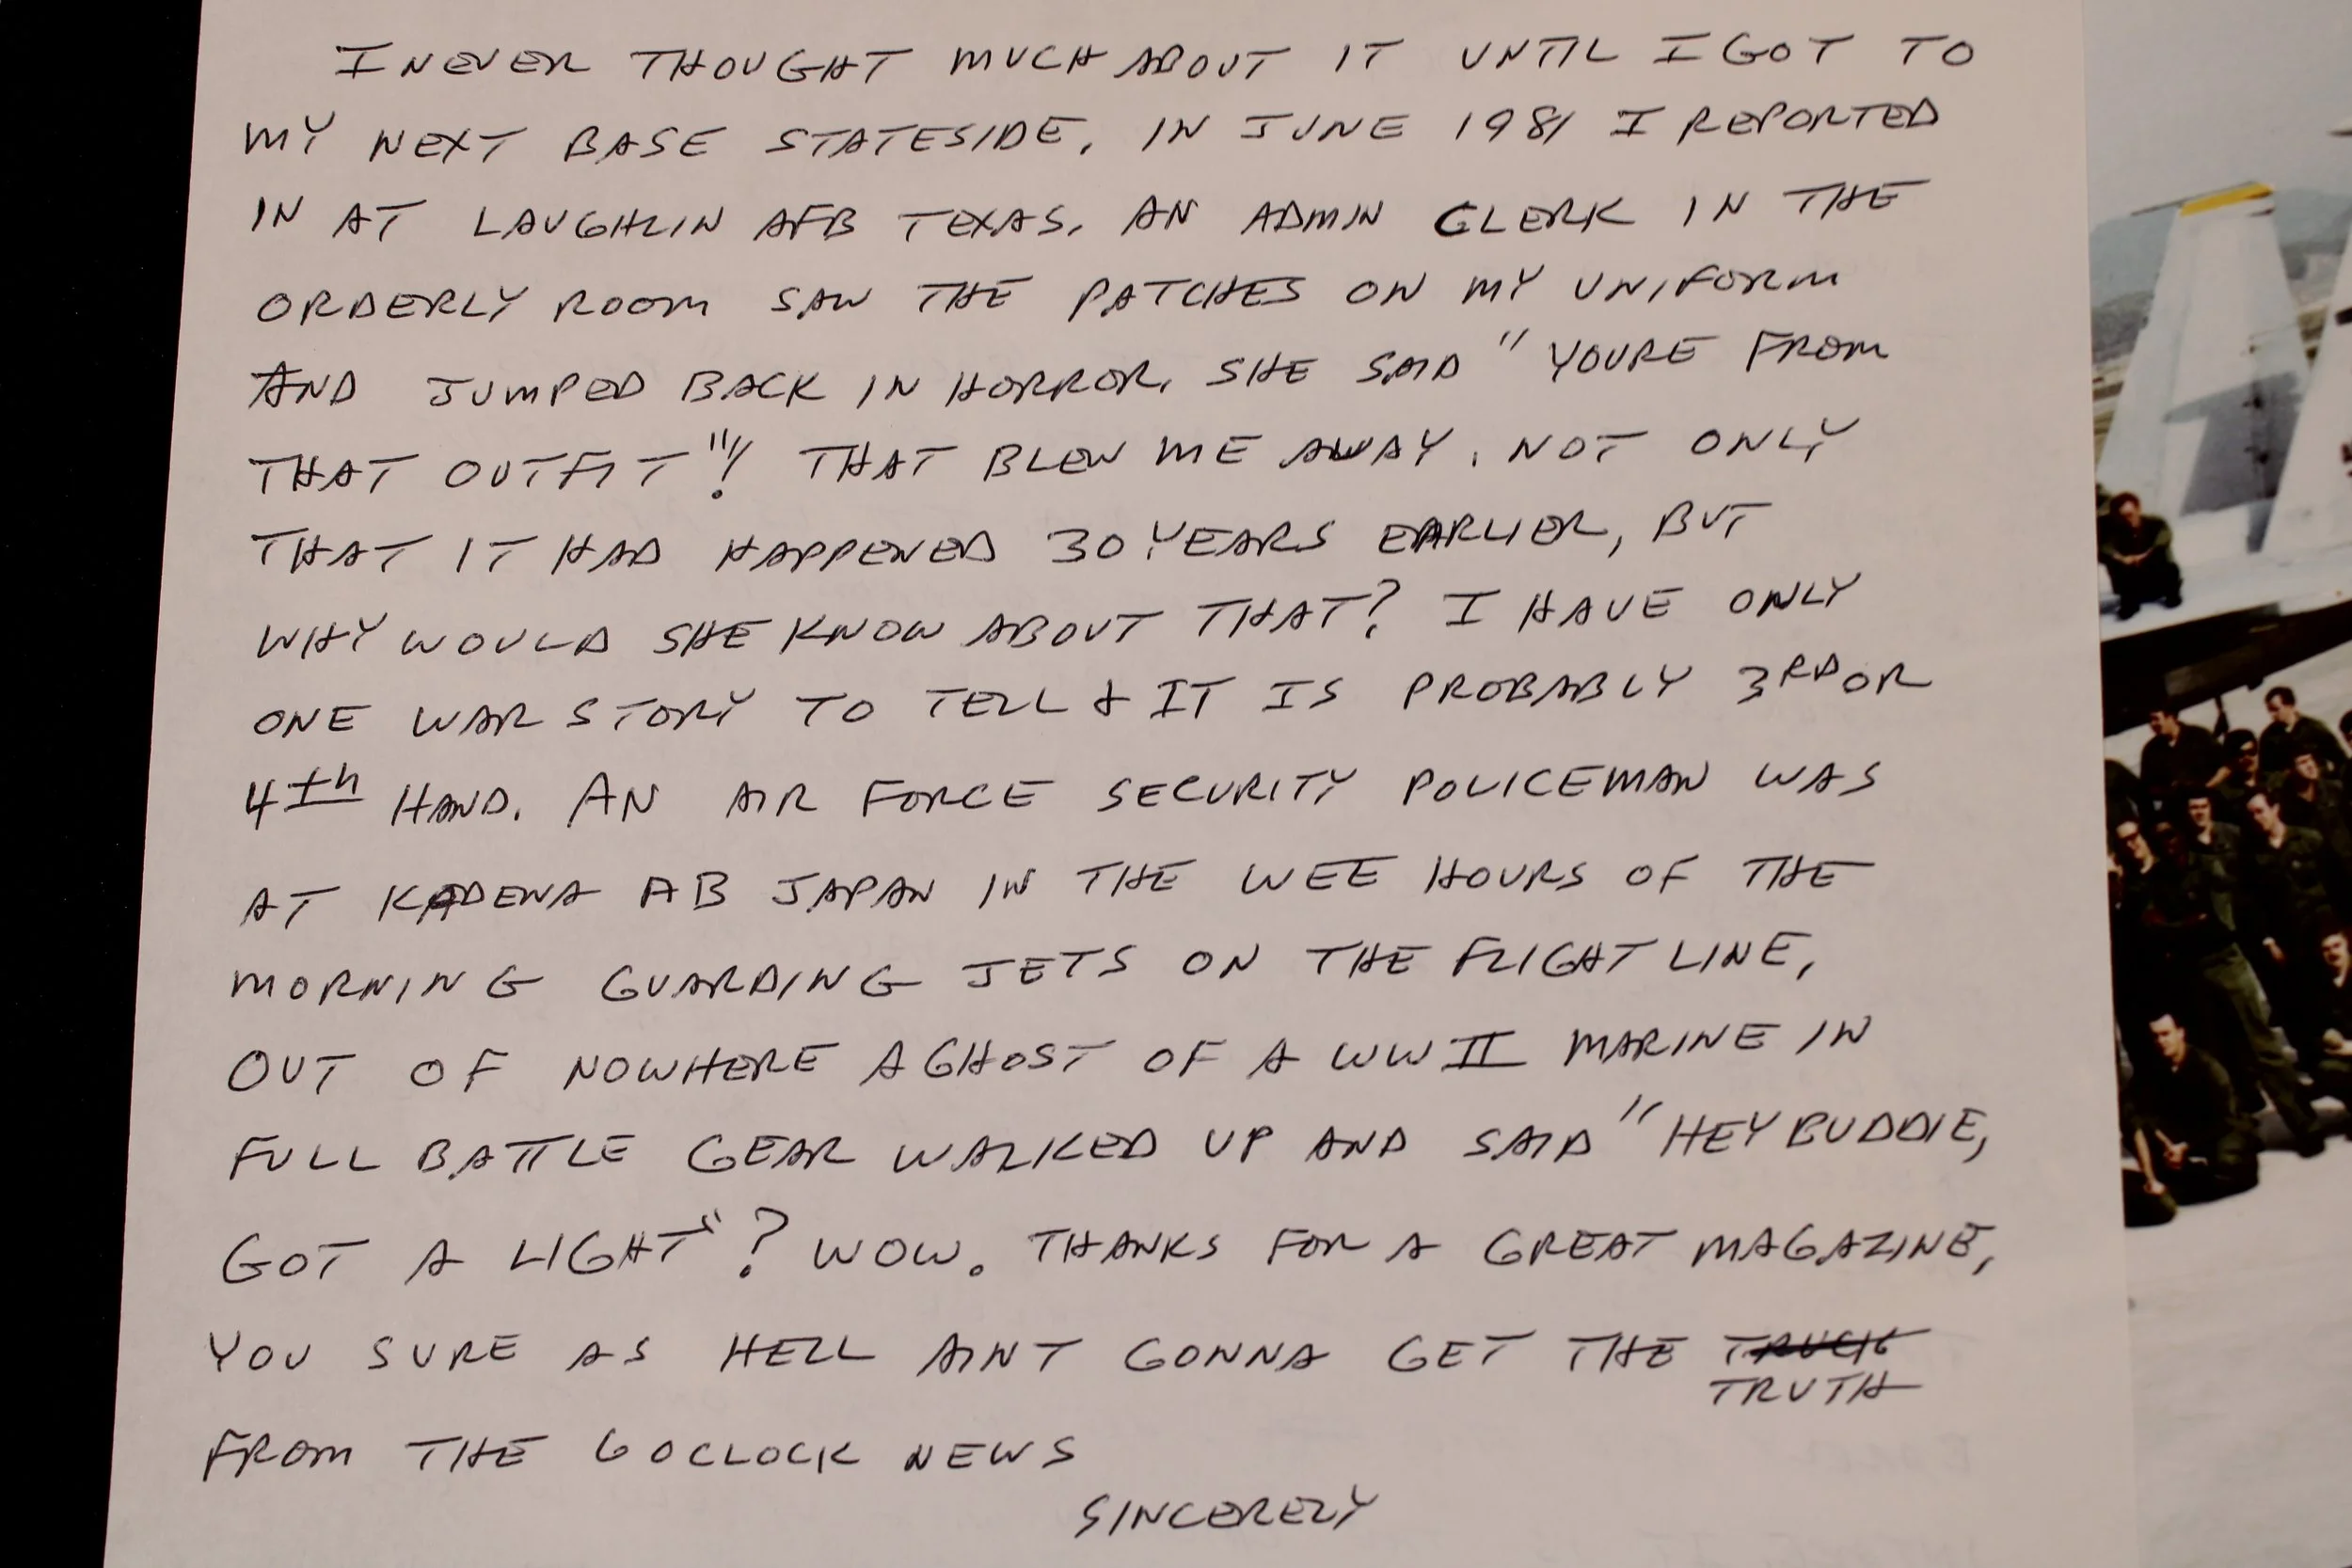 I NEVER THOUGHT MUCH ABOUT IT UNTIL I GOT TO
MY NEXT BASE STATESIDE. IN JUNE 1981 I REPORTED
IN AT LAUGHLIN AFB TEXAS. AN ADMIN CLERK IN THE
ORDERLY ROOM SAW THE PATCHES ON MY UNIFORM
AND JUMPED BACK IN HORROR. SHE SAID "YOURE FROM
THAT OUTFIT"! THAT BLEW ME AWAY. NOT ONLY
THAT IT HAD HAPPENED 30 YEARS EARLIER, BUT
WHY WOULD SHE KNOW ABOUT THAT? I HAVE ONLY
ONE WAR STORY TO TELL & IT IS PROBABLY 3RD OR
4th HAND. AN AIR FORCE SECURITY POLICEMAN WAS
AT KADENA AB JAPAN IN THE WEE HOURS OF THE
MORNING GUARDING JETS ON THE FLIGHT LINE,
OUT OF NOWHERE A GHOST OF A WW II MARINE IN
FULL BATTLE GEAR WALKED UP AND SAID "HEY BUDDIE,
GOT A LIGHT"? WOW. THANKS FOR A GREAT MAGAZINE,
YOU SURE AS HELL AINT GONNA GET THE
TRUTH
FROM THE 6 OCLOCK NEWS
SINCERELY